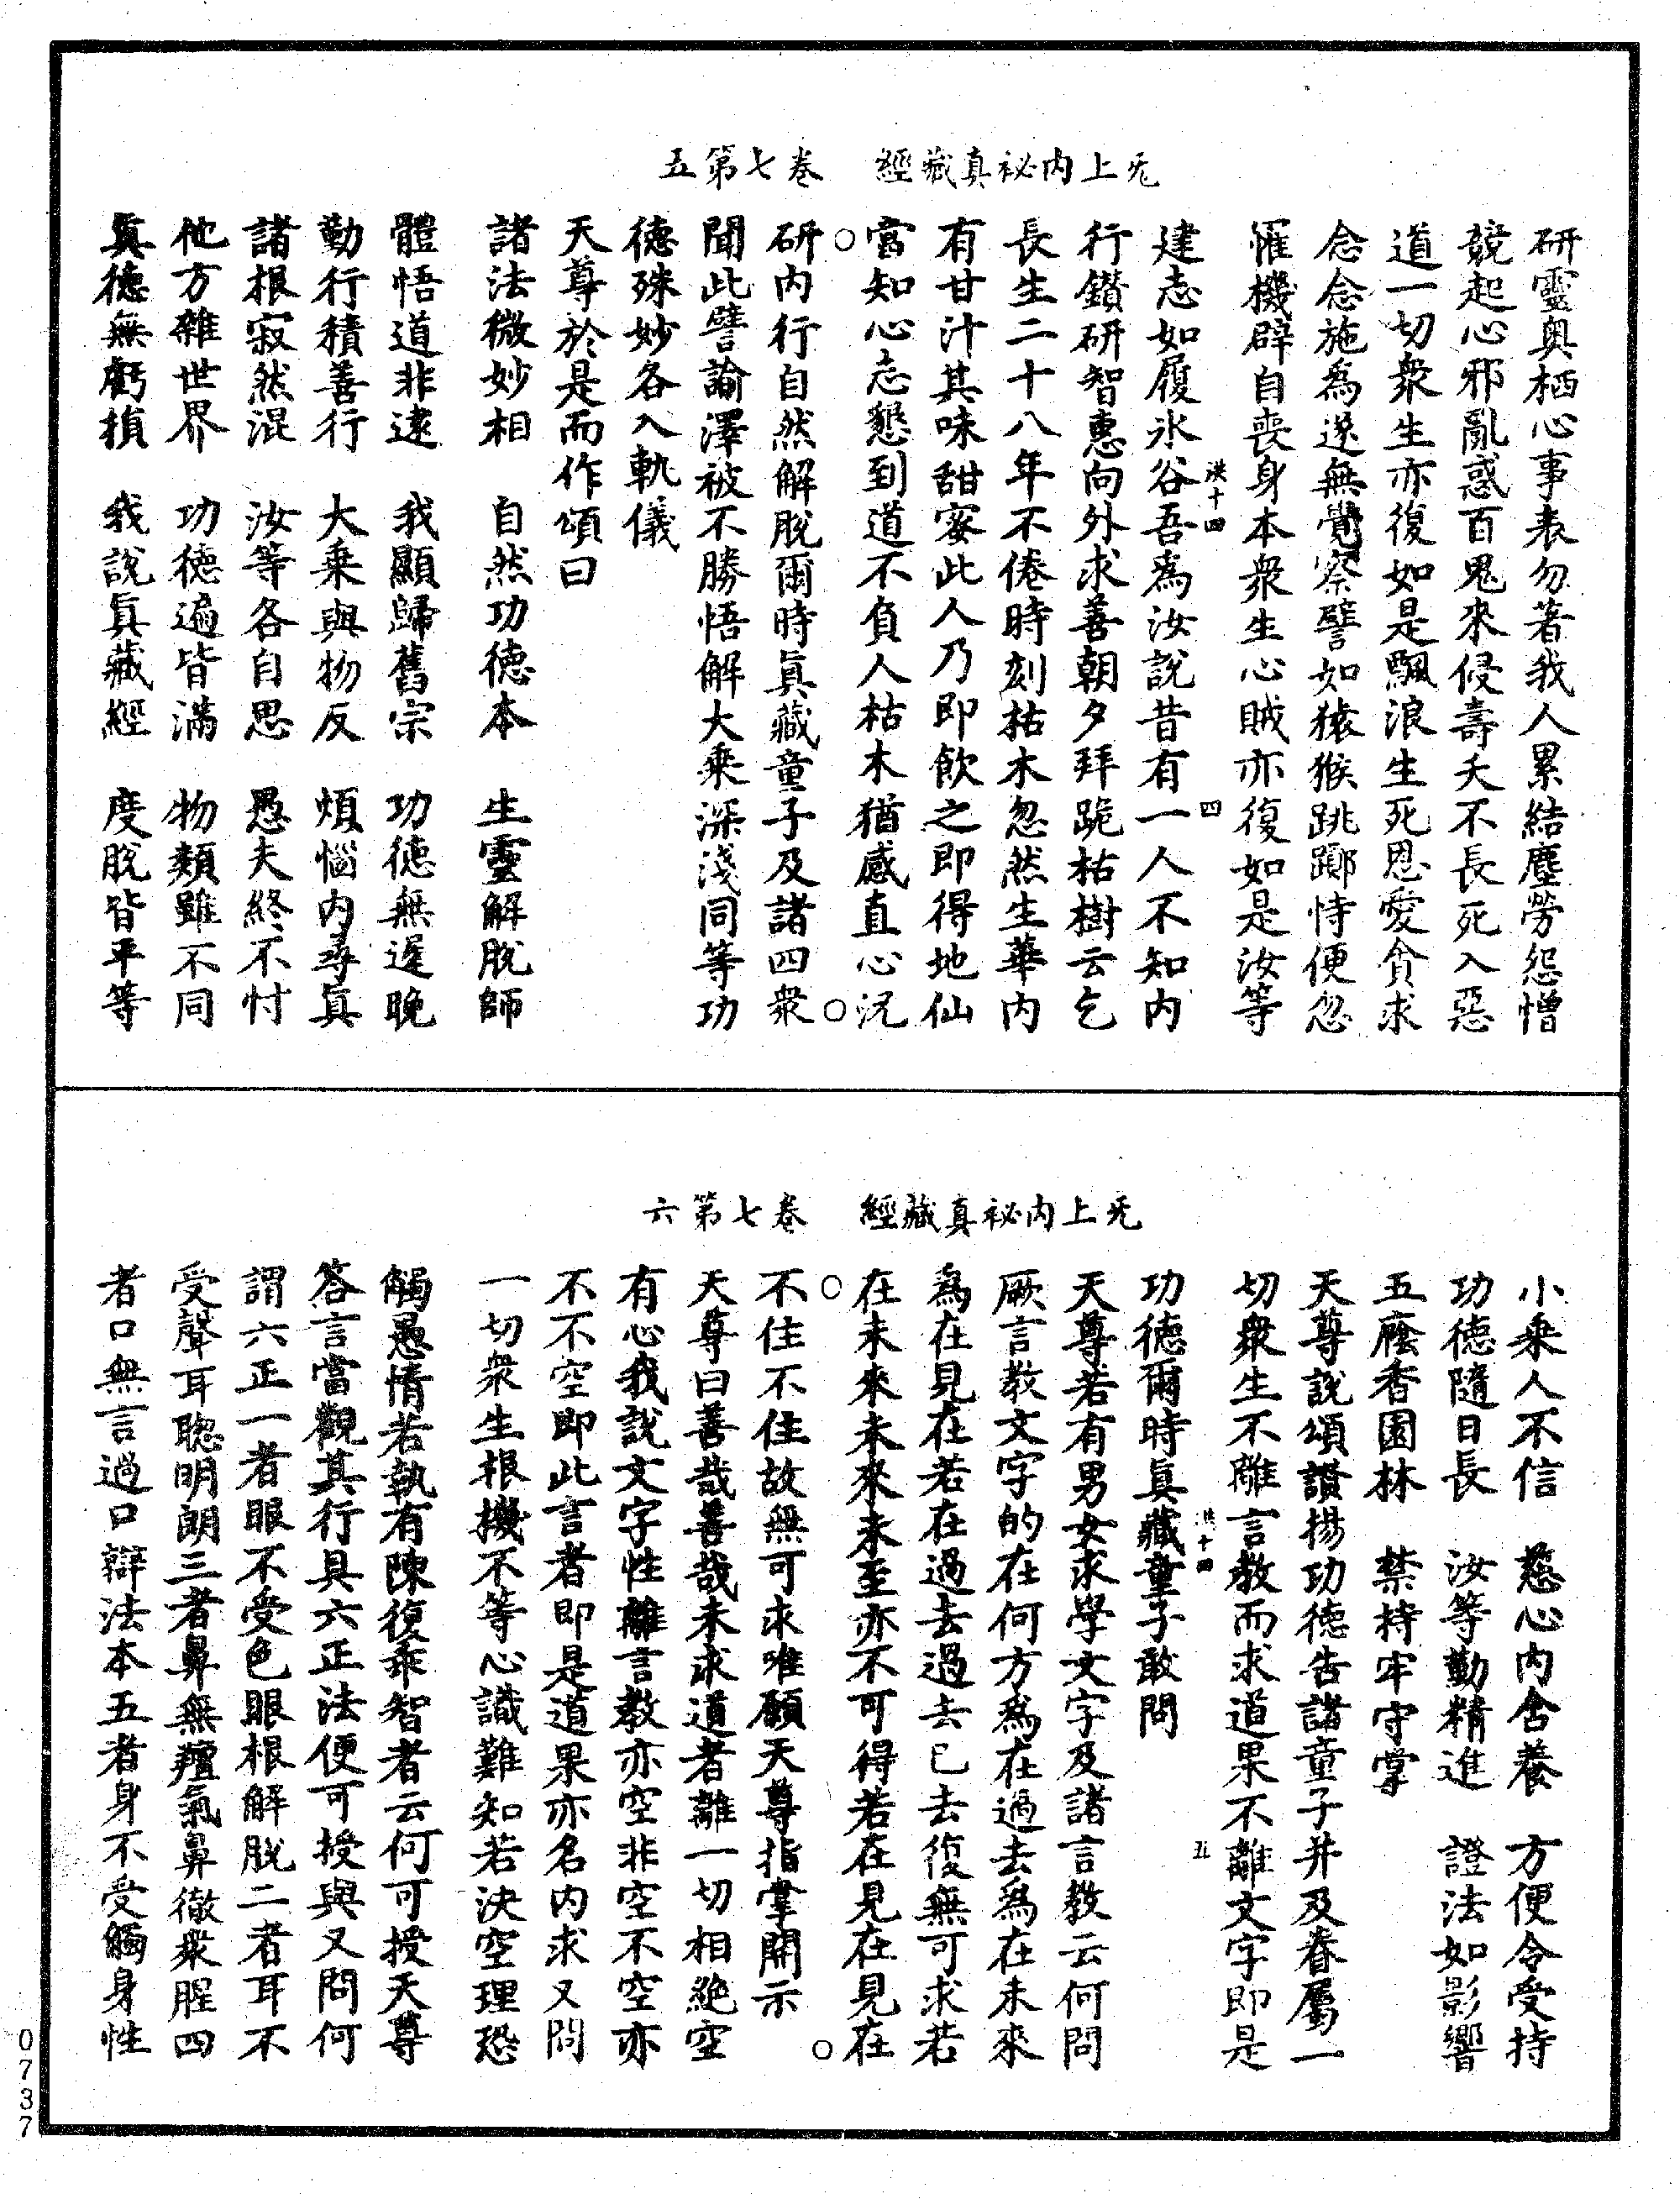 无上內祕真藏經　卷七第五
研靈奧栖心事表勿著我人累結塵勞怨憎
競起心邪亂惑百鬼來侵壽夭不長死入惡
道一切衆生亦復如是飄浪生死恩愛貪求
念念施爲遂無覺察譬如猿猴跳躑恃便忽
罹機辟自喪身本衆生心賊亦復如是汝等
漢十四　四
建志如履氷谷吾爲汝說昔有一人不知內
行鑚研智惠向外求善朝夕拜跪枯樹云乞
長生二十八年不倦時刻枯木忽然生華內
有甘汁其味甜蜜此人乃即飲之即得地仙
當知心志懇到道不負人枯木猶感直心況
研內行自然解脫爾時真藏童子及諸四衆
聞此譬諭澤被不勝悟解大乗深淺同等功
德殊妙各入軌儀
天尊於是而作頌曰
諸法微妙相　自然功德本　生靈解脫師
體悟道非遠　我顯歸舊宗　功德無遲晚
勤行積善行　大乗與物反　煩惱內尋真
諸根寂然混　汝等各自思　愚夫終不忖
他方雜世界　功德遍皆滿　物類雖不同
真德無虧損　我說真藏經　度脫皆平等
无上內祕真藏經　卷七第六
小乗人不信　慈心內含養　方便令受持
功德隨日長　汝等勤精進　證法如影響
五廕香園林　禁持牢守掌
天尊說頌讃揚功德告諸童子并及眷屬一
切衆生不離言教而求道果不離文字即是
漢十四　五
功德爾時真藏童子敢問
天尊若有男女求學文字及諸言教云何問
厥言教文字的在何方爲在過去爲在未來
爲在見在若在過去過去已去復無可求若
在未來未來未至亦不可得若在見在見在
不住不住故無可求唯願天尊指掌開示
天尊曰善哉善哉未求道者離一切相絶空
有心我說文字性離言教亦空非空不空亦
不不空即此言者即是道果亦名內求又問
一切衆生根機不等心識難知若決空理恐
觸愚情若執有陳復乖智者云何可授天尊
答言當觀其行具六正法便可授與又問何
謂六正一者眼不受色眼根解脫二者耳不
受聲耳聰明朗三者鼻無羶氣鼻徹衆腥四
者口無言過口辯法本五者身不受觸身性
0737